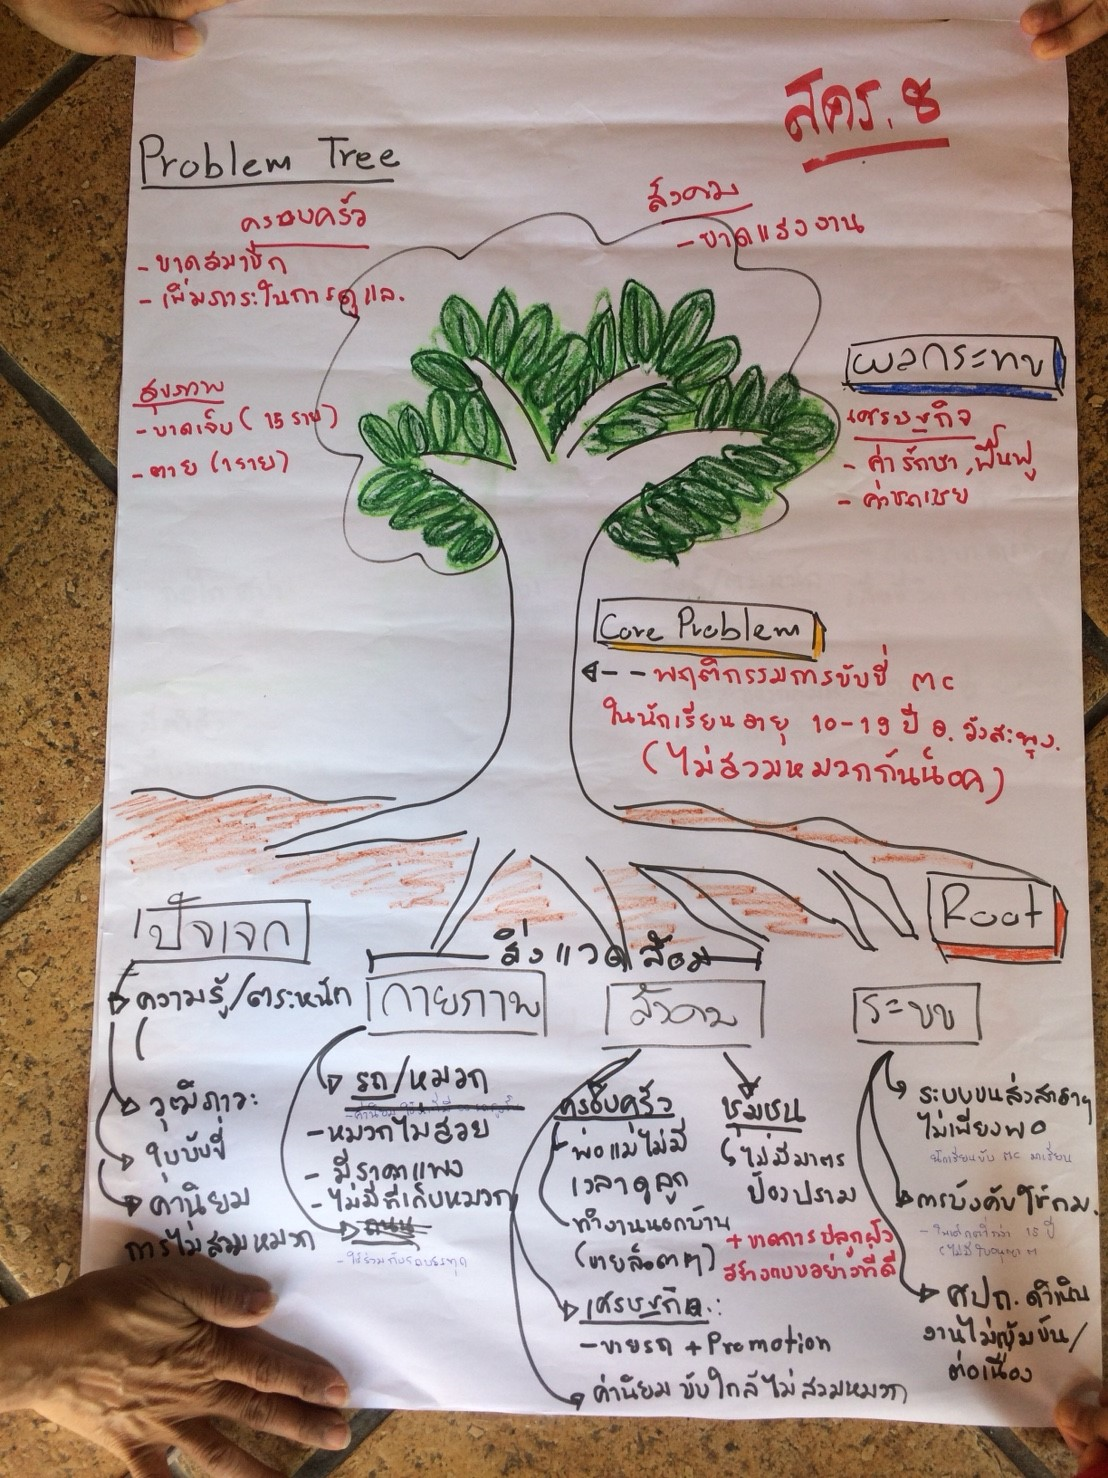 สคร. 8
Problem Tree
ครอบครัว
- ขาดสมาชิก
- เพิ่มภาระในการดูแล.
สังคม
- ขาดแรงงาน
สุขภาพ
- บาดเจ็บ (15 ราย)
- ตาย (1 ราย)
ผลกระทบ
เศรษฐกิจ
- ค่ารักษา, ฟื้นฟู
- ค่าชดเชย
Core Problem
พฤติกรรมการขับขี่ MC
ในนักเรียนอายุ 10-19 ปี อ. วังสะพุง.
(ไม่สวมหมวกกันน็อค)
Root
ปัจเจก
ความรู้/ตระหนัก
วุฒิภาวะ
ใบขับขี่
ค่านิยม
การไม่สวมหมวก
สิ่งแวดล้อม
กายภาพ
รถ/หมวก
- หมวกไม่สวย
- มีราคาแพง
- ไม่มีที่เก็บหมวก
ถนน
- ใช้ร่วมกับรถบรรทุก
สังคม
ครอบครัว
พ่อแม่ไม่มี
เวลาดูลูก
ทำงานนอกบ้าน
(ขายล็อตฯ)
ชุมชน
ไม่มีมาตร
ป้องปราม
+ ขาดการปลูกฝัง
สร้างแบบอย่างที่ดี
เศรษฐกิจ:
- ขายรถ + Promotion
ค่านิยม ขับใกล้ไม่สวมหมวก
ระบบ
ระบบขนส่งสาธาฯ
ไม่เพียงพอ
นักเรียนขับ MC มาเรียน
การบังคับใช้กม.
- ในเด็กต่ำกว่า 15 ปี
ศปถ. ดำเนิน
งานไม่เข้มข้น/
ต่อเนื่อง